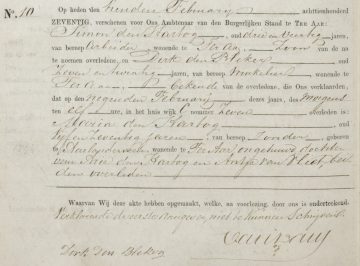 No. 10
Op heden den tienden February achttienhonderd
ZEVENTIG, verschenen voor Ons Ambtenaar van den Burgerlijken Stand te TER AAR:
Simon den Hartog, oud drie en veertig jaren,
van beroep arbeider, wonende te Ter Aar, Zoon van de na
te noemen overledene, en Dirk den Blieker, oud
Zeven en twintig jaren, van beroep Winkelier, wonende te
Ter Aar, Bekende van de overledene, die Ons verklaarden,
dat op den negenden February dezes jaars, des morgens
ten ure, in het huis wijk C nummer Zeven overleden is:
Maria den Hartog, oud
vijf en zeventig jaren, van beroep Zonder, geboren
te wonende te Ter Aar, ongehuwd, dochter
van den Hartog en Antje van Vliet, beide
overleden.
Waarvan Wij deze akte hebben opgemaakt, welke, na voorlezing, door ons is onderteekend.
Verklarende de eerste aangever niet te kunnen Schrijven.
Dirk Den Blieker